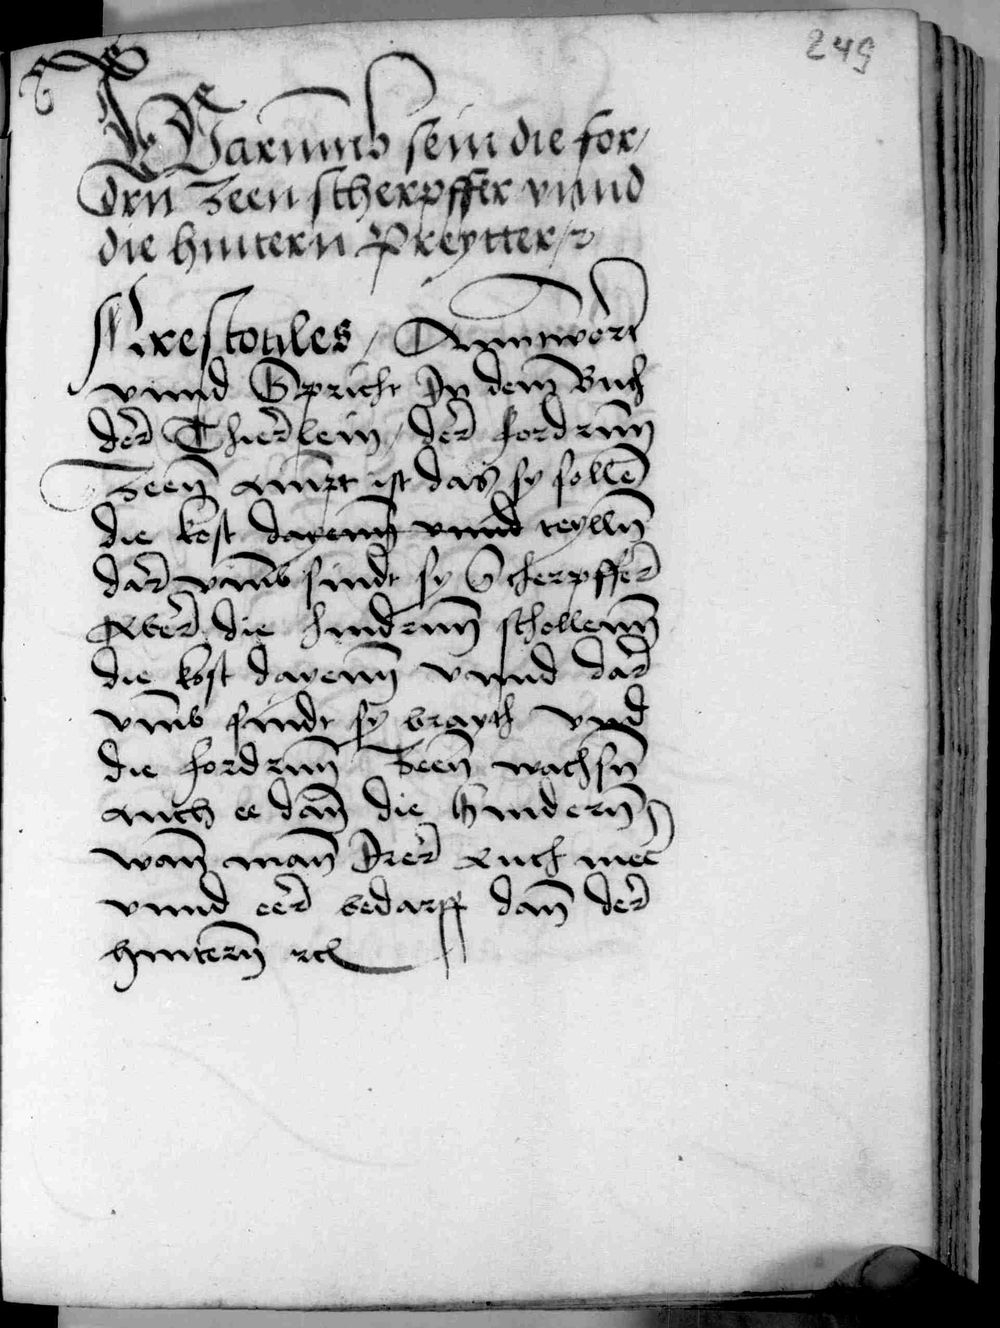 249
Warumb sein die for/
drn Zeen scherpffer vnnd
die hintern Preytter /
Arestotiles / Anntwort
vnnd Spricht Jn dem Buch
der Thierlein / der fordrnn
Zeen ampt ist das sy solle
die kost dayenn vnnd teylln
dar vmb sindt sy Scherpffer
Aber die hindrnn schollenn
die kost dayenn vnnd dar
vmb sindt sy brayth vnd
die fordrnn Zeen wachsn
auch ee dan die hindern
wan man Jrer auch mer
vnnd eer bedarff dan der
hintern rc